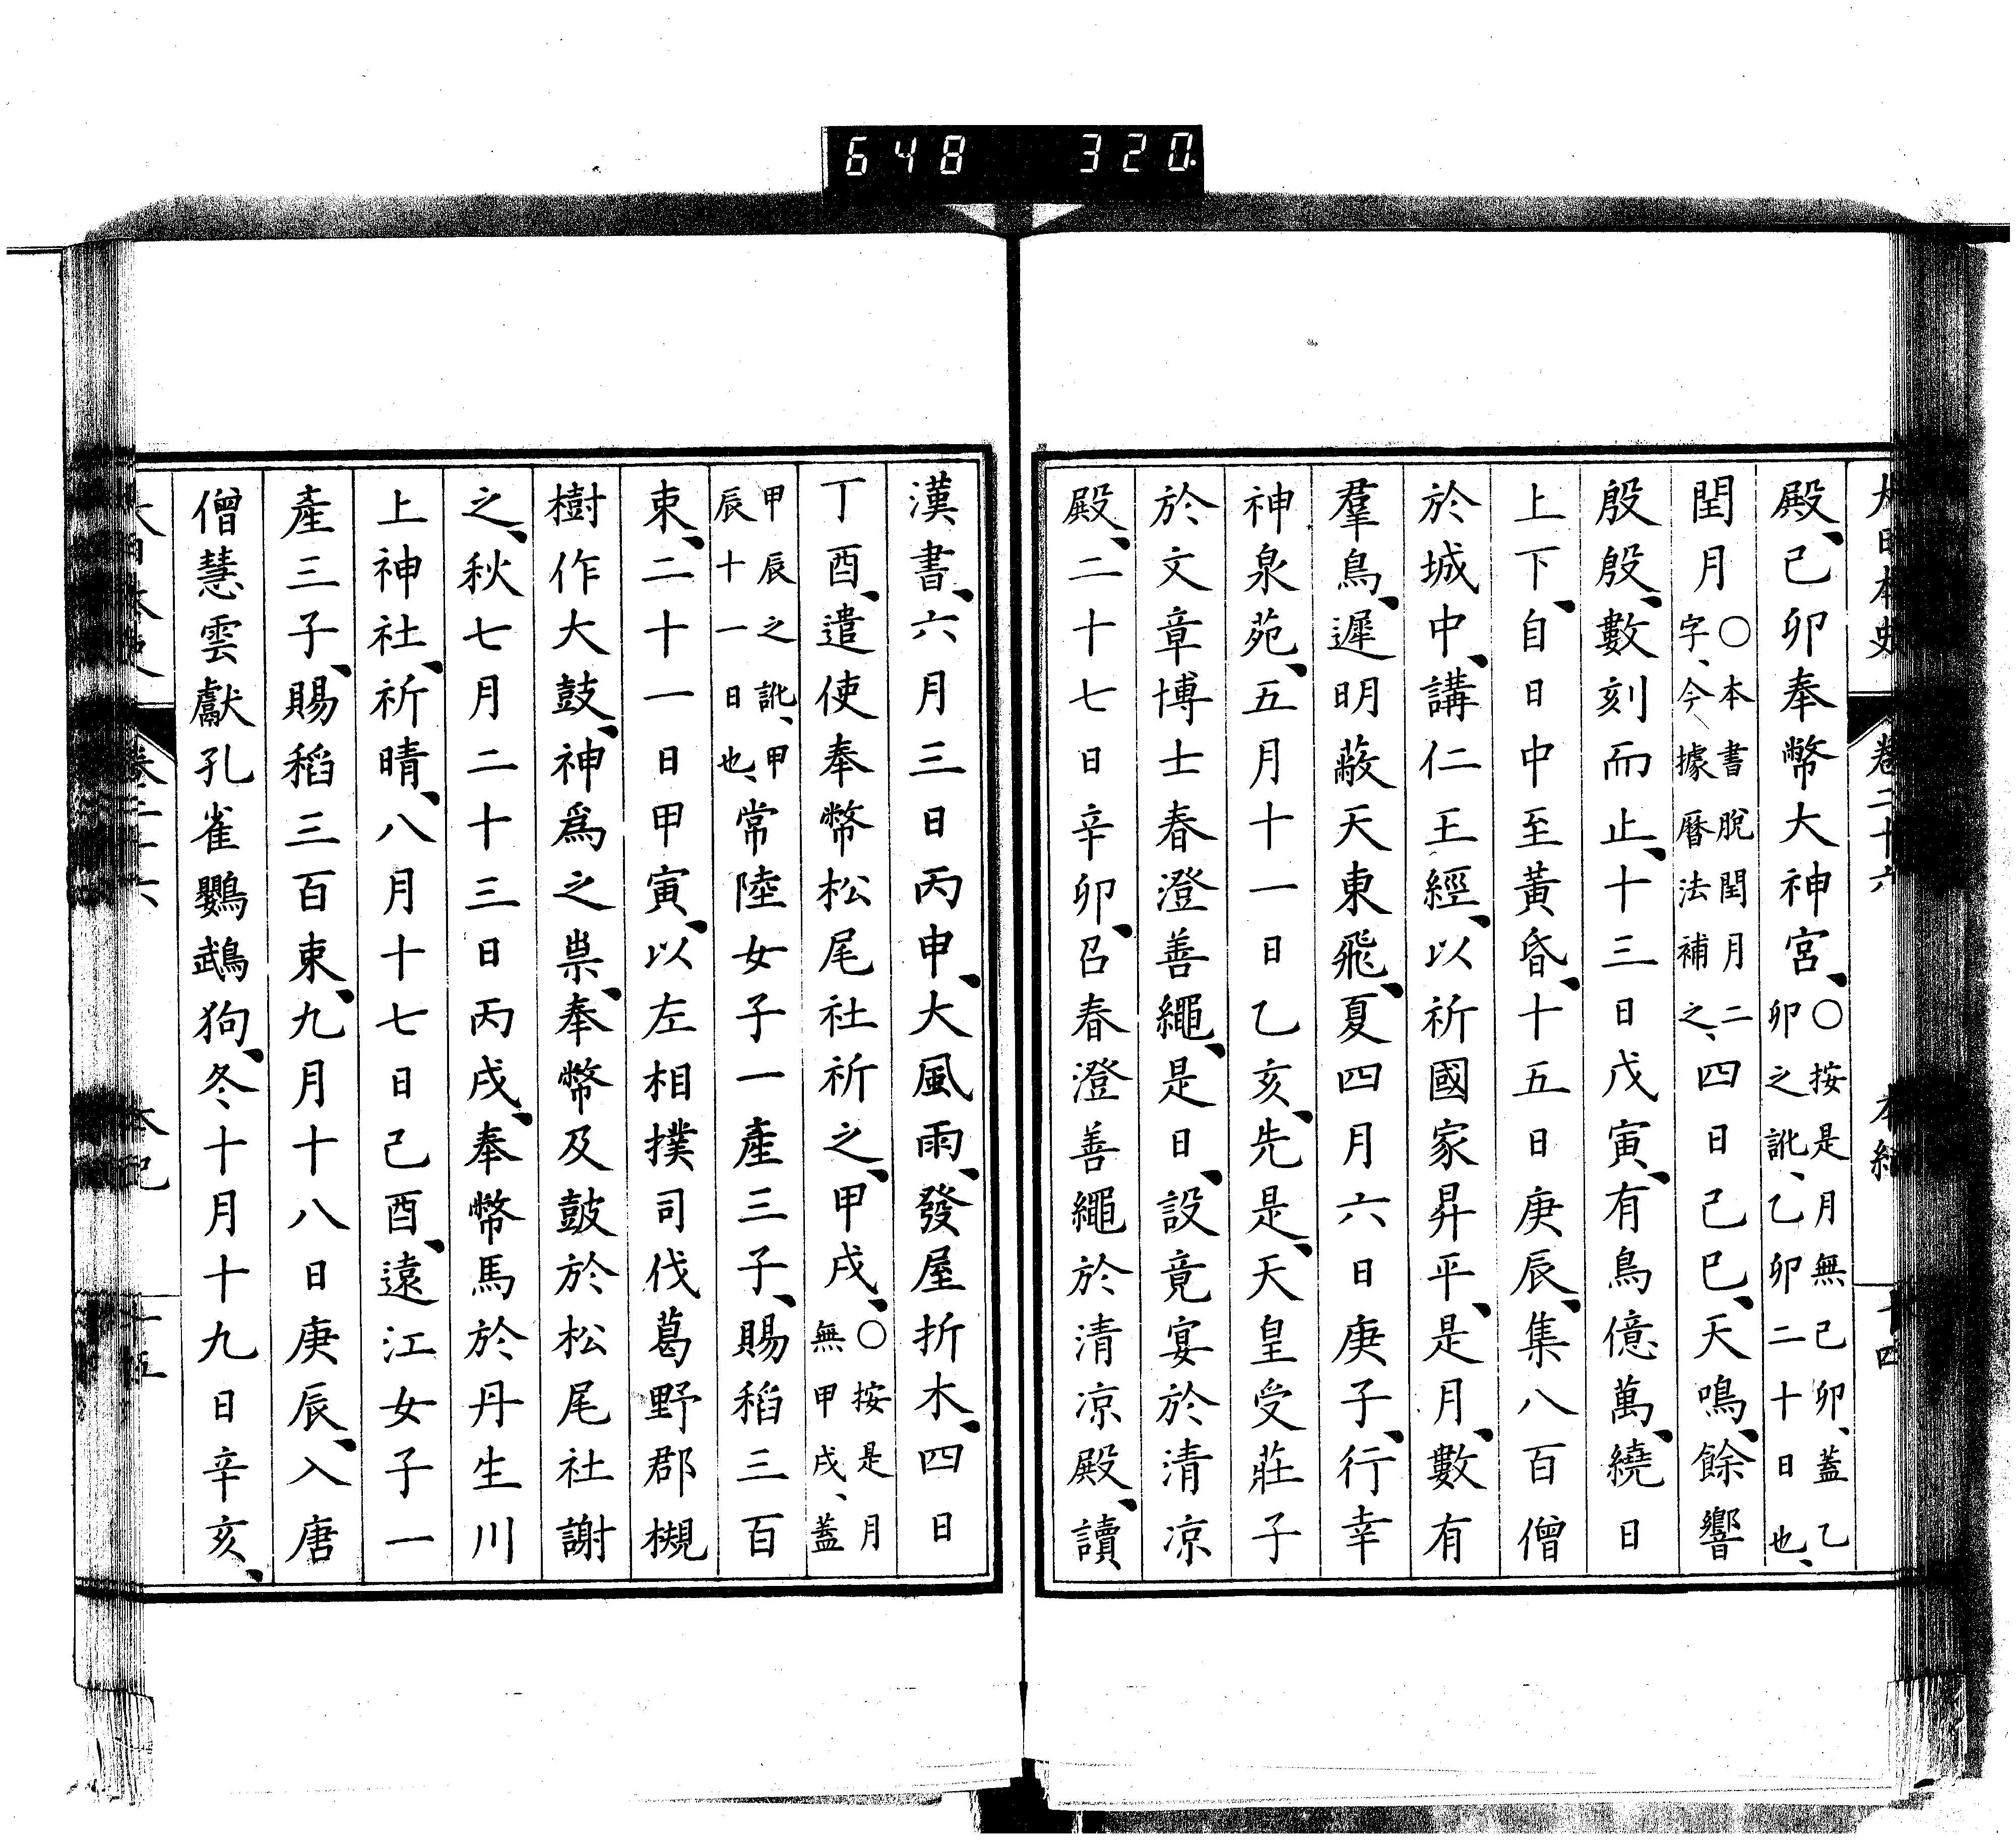 648 320
大日本史 卷二十六 本紀 十四
殿、己卯奉幣大神宮、〇按是月無己卯、蓋乙卯之訛、乙卯二十日也、
閏月〇本書脫閏月二字、今據曆法補之、四日己巳、天鳴、餘響
殷殷、數刻而止、十三日戊寅、有鳥億萬、繞日
上下、自日中至黃昏、十五日庚辰、集八百僧
於城中、講仁王經、以祈國家昇平、是月、數有
羣鳥、遲明蔽天東飛、夏四月六日庚子、行幸
神泉苑、五月十一日乙亥、先是、天皇受莊子
於文章博士春澄善繩、是日、設竟宴於清涼
殿、二十七日辛卯、召春澄善繩於清涼殿、讀
漢書、六月三日丙申、大風雨、發屋折木、四日
丁酉、遣使奉幣松尾社祈之、甲戌、〇按是月無甲戌、蓋
甲辰之訛、甲辰十一日也、常陸女子一產三子、賜稻三百
束、二十一日甲寅、以左相撲司伐葛野郡槻
樹作大鼓、神爲之祟、奉幣及鼓於松尾社謝
之、秋七月二十三日丙戌、奉幣馬於丹生川
上神社、祈晴、八月十七日己酉、遠江女子一
產三子、賜稻三百束、九月十八日庚辰、入唐
僧慧雲獻孔雀鸚鵡狗、冬十月十九日辛亥、
大日本史 卷二十六 本紀 十五